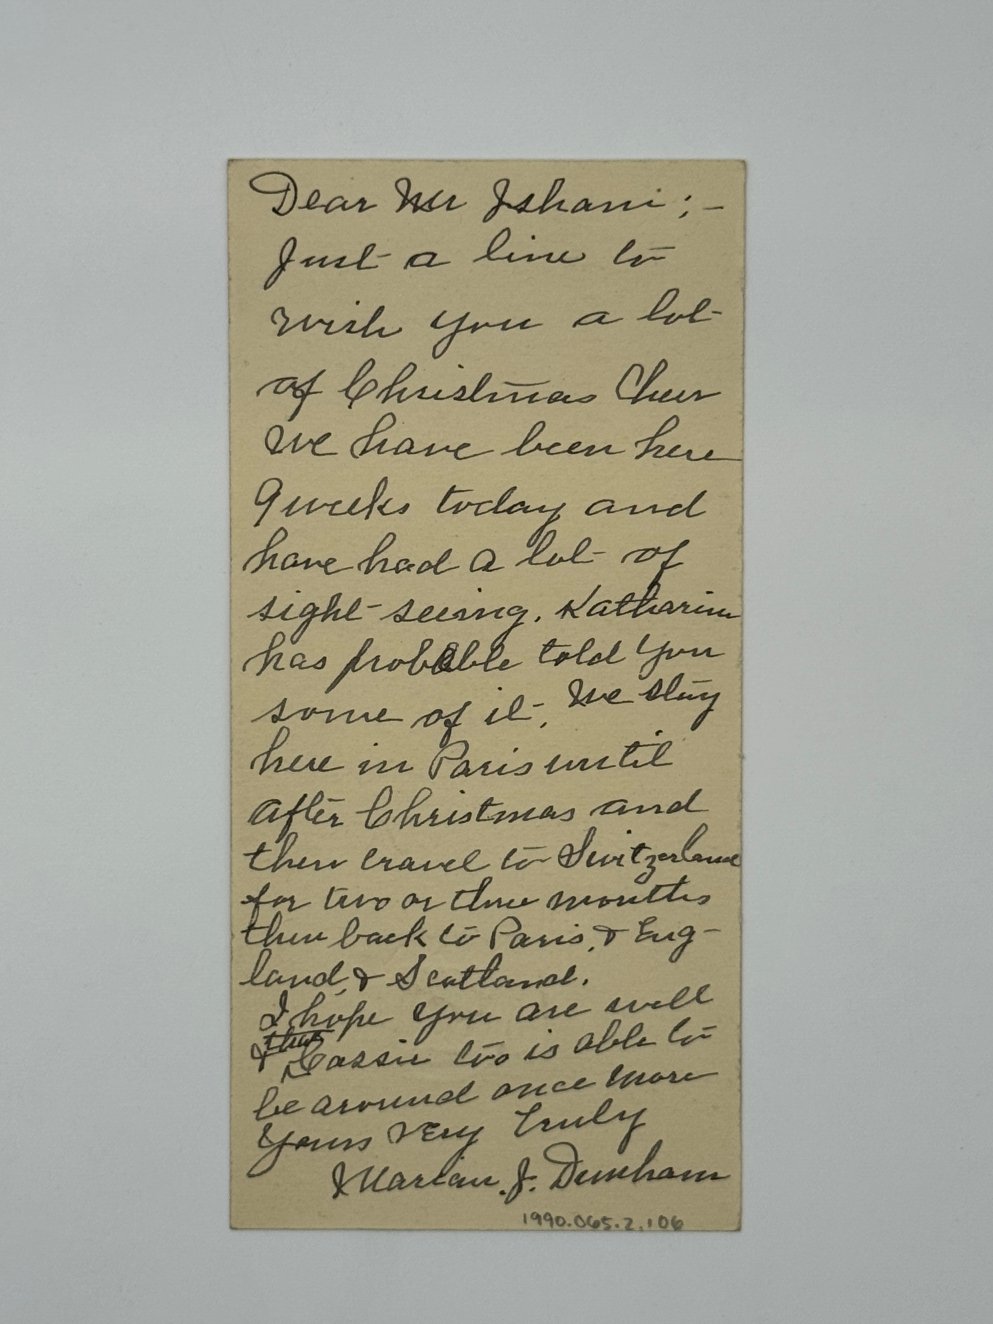 Dear Mr Ishani ; -
Just a line to
wish you a lot
of Christmas Cheer
We have been here
9 weeks today and
have had a lot of
sight-seeing. Katharine
has probable told you
some of it, We stay
here in Paris until
after Christmas and
then travel to Switzerland
for two or three months
then back to Paris, & Eng-
land, & Scotland.
I hope you are well
& that Cassie too is able to
be around once more
Yours Very Truly
Marian. J. Dunham
1990.065.2.106